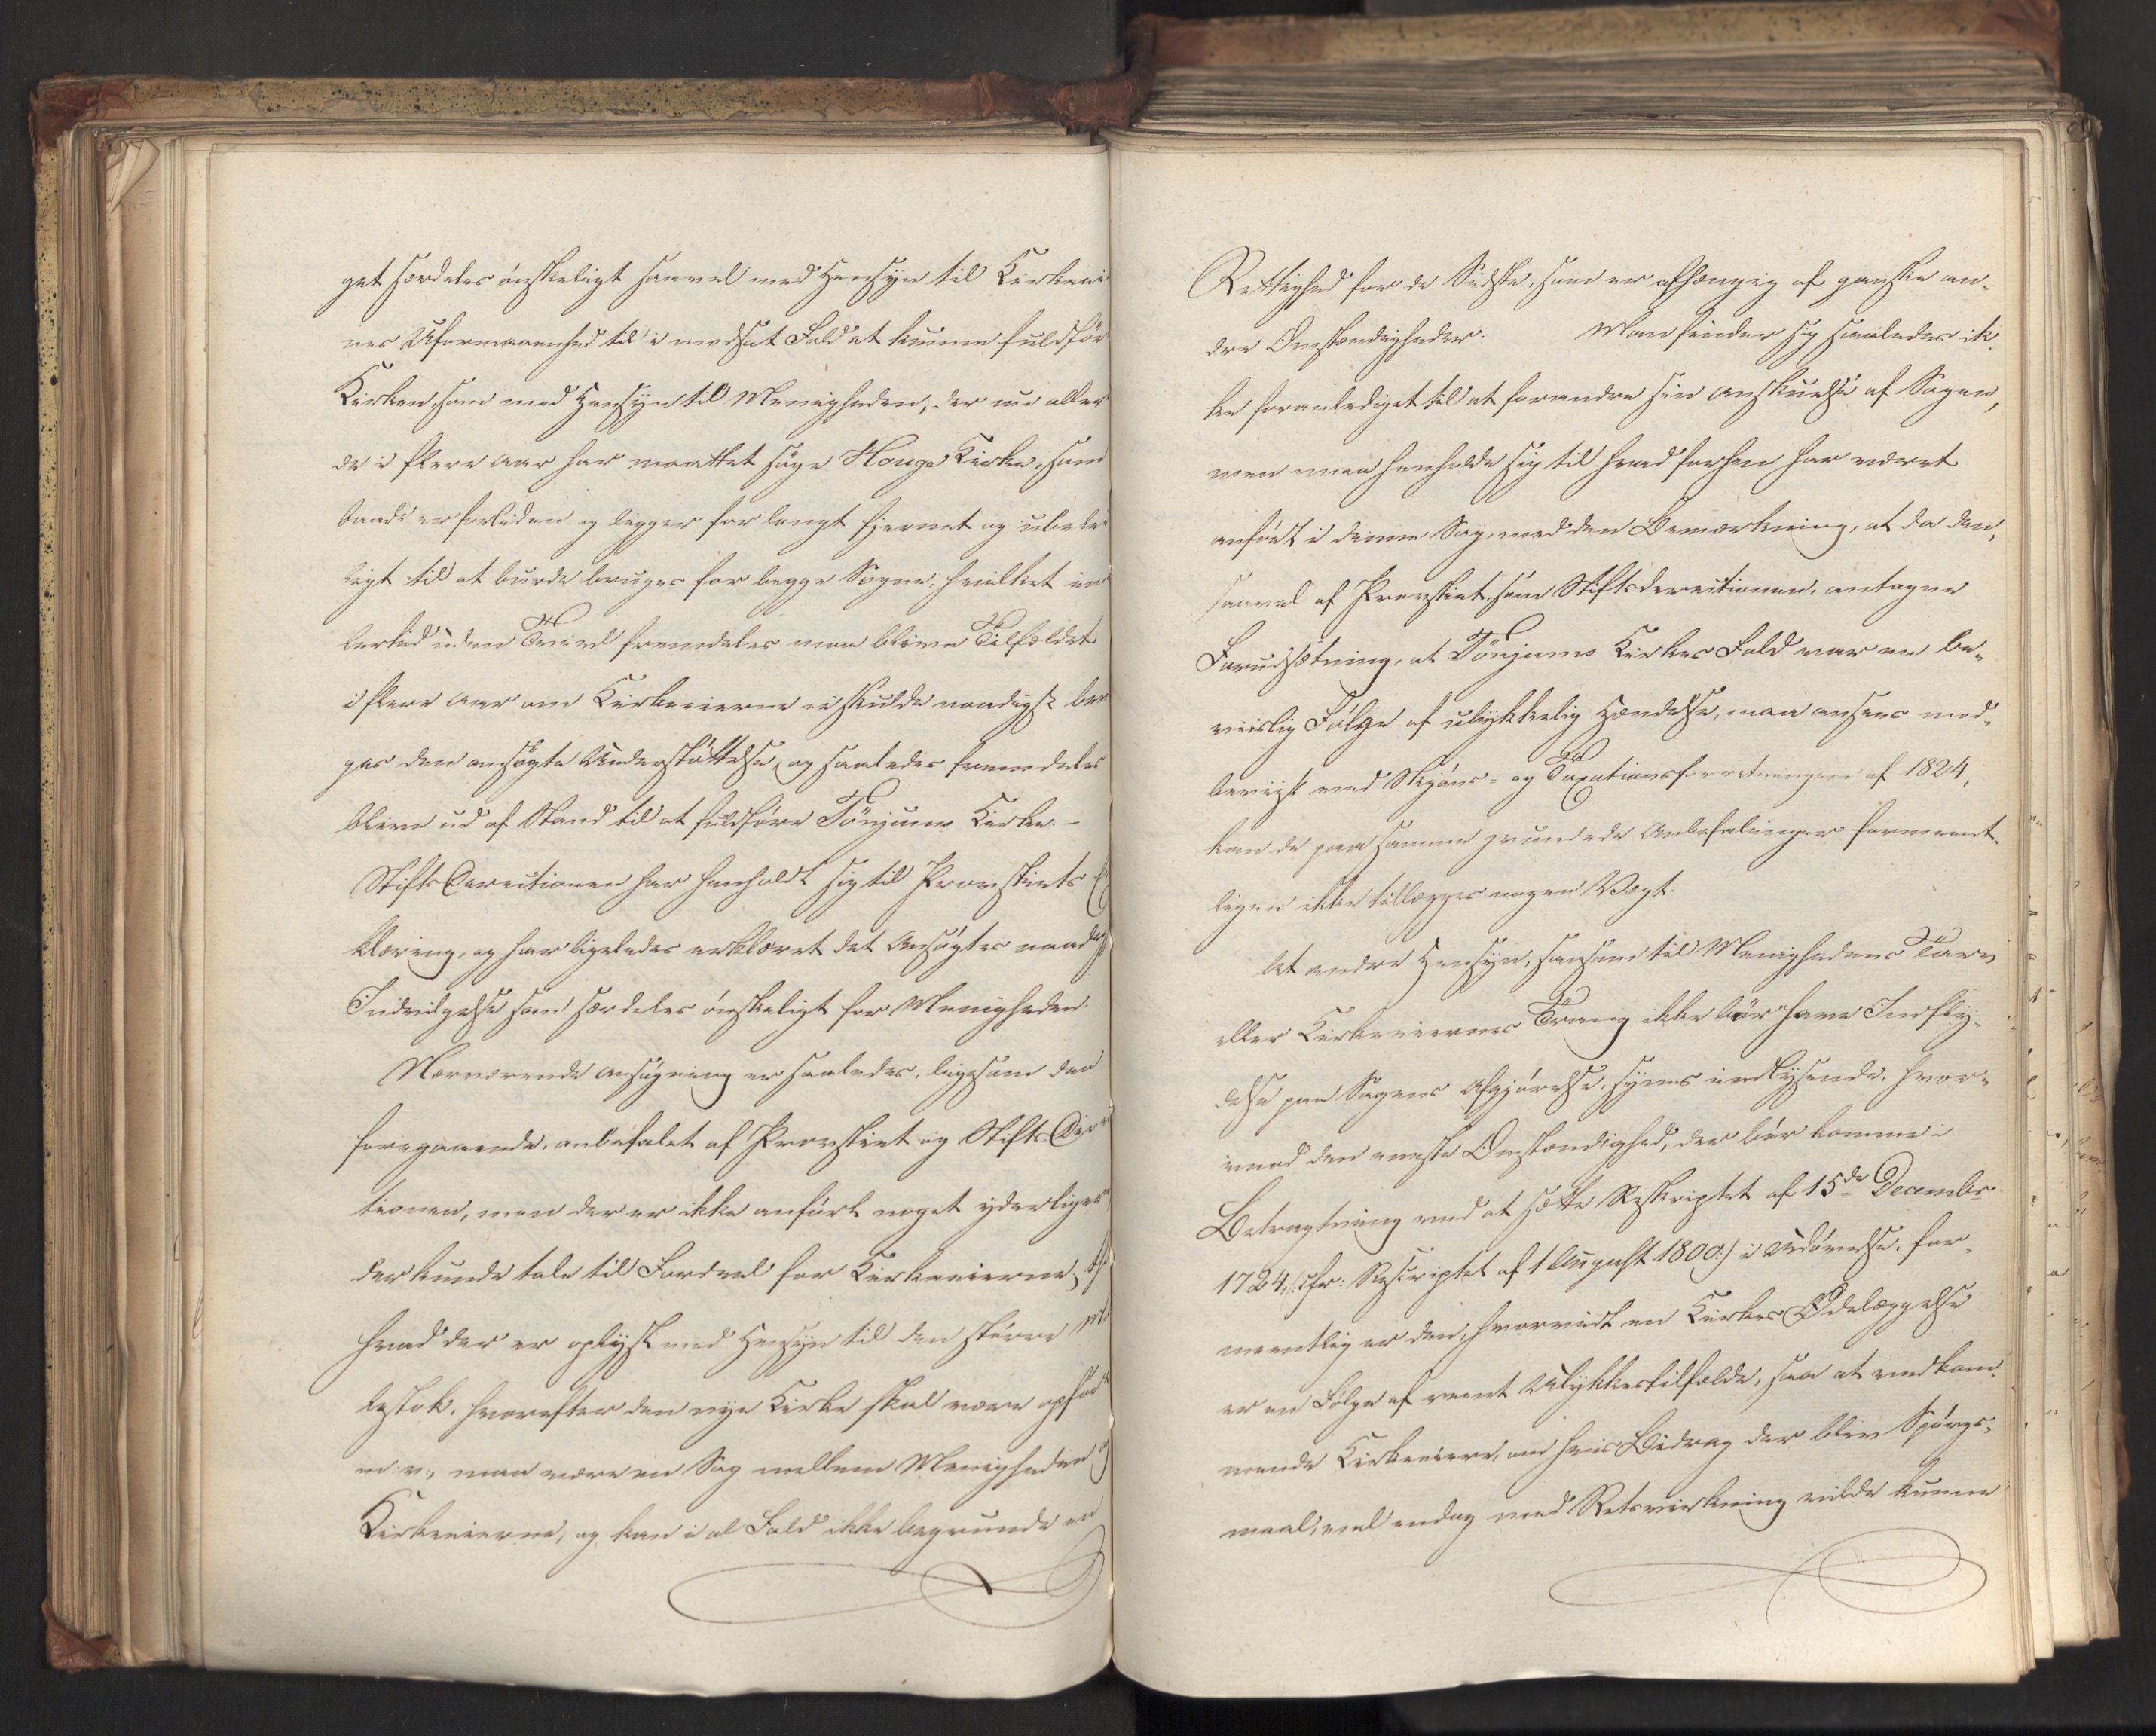 get særdeles ønskeligt saavel med Hensyn til Kirkeeier
nes Uformuenhed til i modsat Fald at kunne fuldføre
Kirken, som med Hensyn til Menigheden, der nu aller
de i flere Aar har maattet søge Hauge Kirke, som
baade er forliden og ligger for langt fjernet og ubelei
ligt til at burde bruges for begge Sogne, hvilket im
lertid uden Tvivl fremdeles maa blive Tilfældet
i flere Aar om Kirkeeierne ei skulde naadigst bevil
ges den ansøgte Understøttelse, og saaledes fremdeles
blive ud af Stand til at fuldføre Tönjums Kirke. –
Stiftsdirectionen har henholdt sig til Provstiets Er
klæring, og har ligeledes erklæret det Ansøgtes naadigste
Indvilgelse som særdeles ønskeligt for Menigheden.
Nærværende Ansøgning er saaledes, ligesom den
foregaaende, anbefalet af Provstiet og Stifts Direc
tionen, men der er ikke anført noget yderligere
der kunde tale til Fordeel for Kirkeeierne; thi
hvad der er oplyst med Hensyn til den større Ma
lestok, hvorefter den nye Kirke skal være opført
m. v., maa være en Sag mellem Menigheden og
Kirkeeierne, og kan i al Fald ikke begrunde en
Rettighed for de Sidste, som er afhængig af ganske an-
dre Omstændigheder. Man finder sig saaledes ik-
ke foranlediget til at forandre sin Anskuelse af Sagen,
men maa henholde sig til hvad forhen har været
anført i denne Sag, med den Bemærkning, at da den,
saavel af Provstiet, som Stiftsdirectionen, antagne
Forudsætning, at Tönjums Kirkes Fald var en be-
viislig Følge af ulykkelig Hændelse, maa ansees mod-
beviist ved Skjøns- og Taxationsforretningen af 1824,
kan de paa samme grundede Anbefalinger formeent-
ligen ikke tillægges nogen Vægt.
At andre Hensyn, saasom til Menighedens Tarv
eller Kirkeeiernes Trang ikke bør have Indfly-
delse paa Sagens Afgjørelse, synes indlysende, hvor-
imod den eneste Omstændighed, der bør komme i
Betragtning ved at sætte Reskriptet af 15de Decembr
1724, /:cfr: Rescriptet af 1 August 1800:/ i Udøvelse, for-
meentlig er den, hvorvidt en Kirkes Ødelæggelse
er en Følge af reent Ulykkestilfælde, saa at vedkom-
mende Kirkeeiere, om hvis Bidrag der blev Spørgs-
maal, vel endog med Retsvirkning vilde kunne